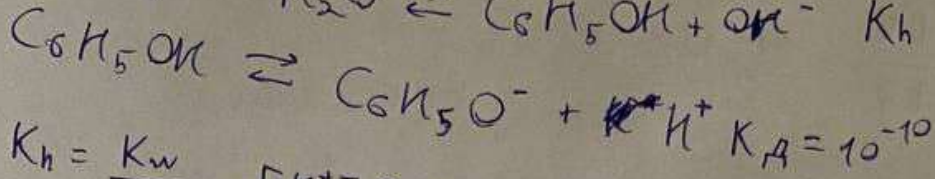 ← C₆H₅OH + OH⁻ Kh
C₆H₅OH ⇄ C₆H₅O⁻ + H⁺ K_Д = 10⁻¹⁰
Kh = Kw